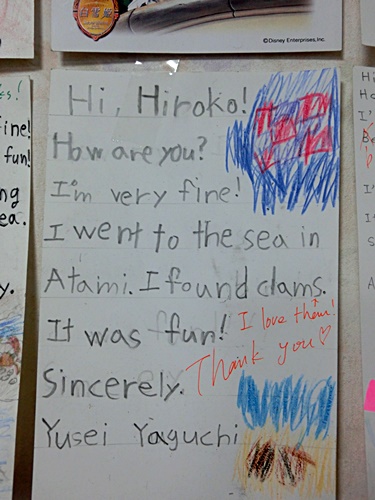 ©Disney Enterprises, Inc.
Hi, Hiroko!
How are you?
I'm very fine!
I went to the sea in
Atami. I found clams.
It was fun! I love them!
Thank you♡
Sincerely.
Yusei Yaguchi
ine!
fun!
ng
ea.
y.